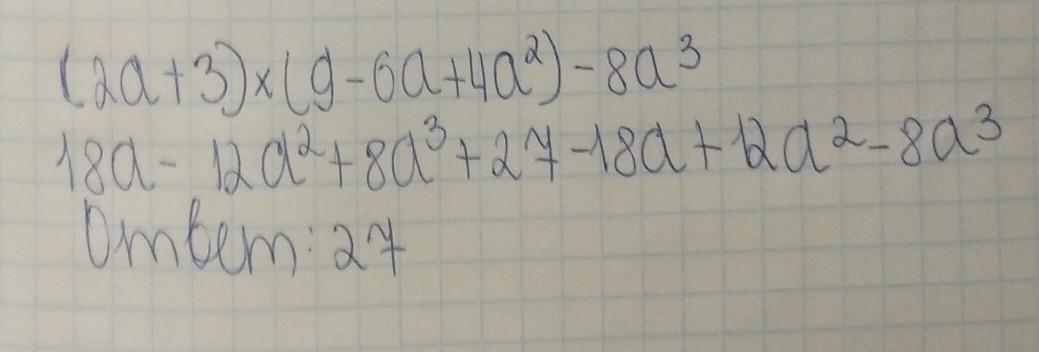 (2a+3)×(9-6a+4a²)-8a³
18a-12a²+8a³+27-18a+12a²-8a³
Ответ: 27